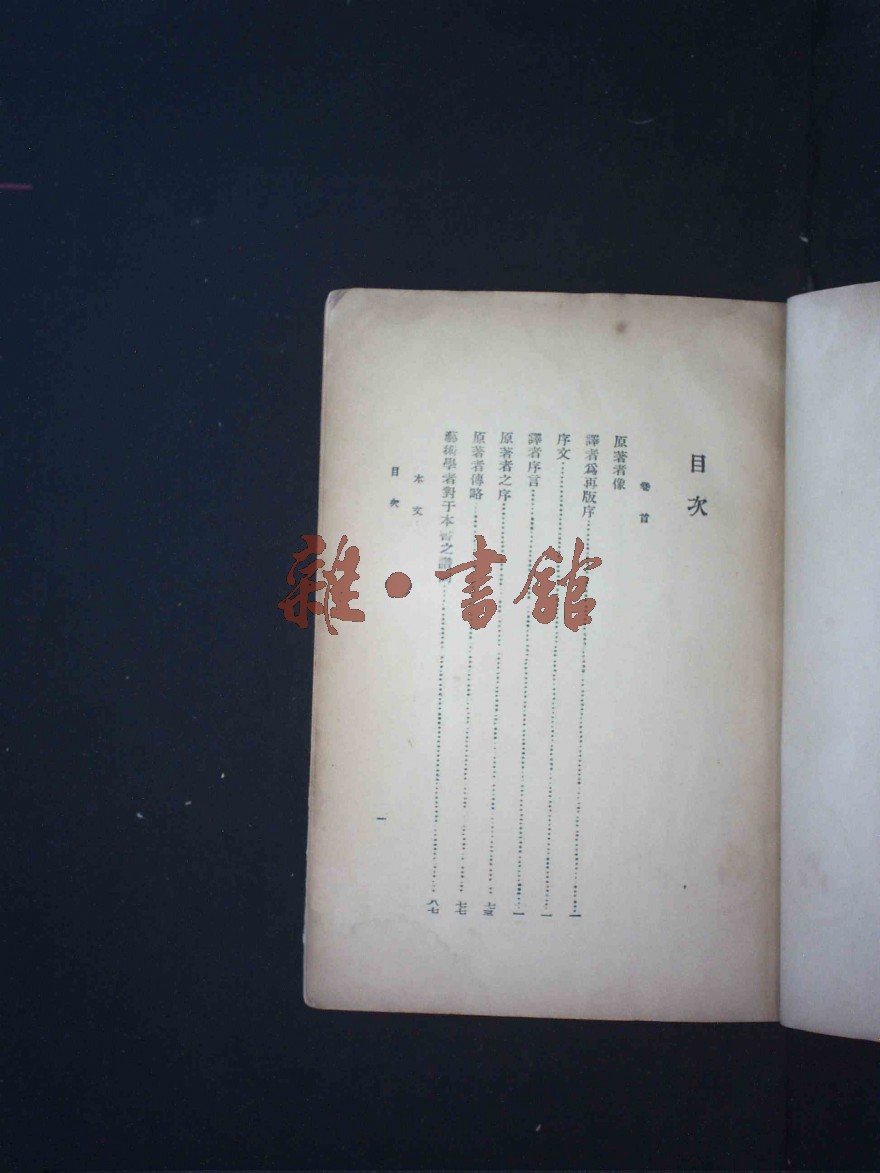 目次
卷首
原著者像
譯者爲再版序……一
序文……一
譯者序言……一
原著者之序……七五
原著者傳略……七七
藝術學者對于本書之
本文
目次
一
八七
雜·書館